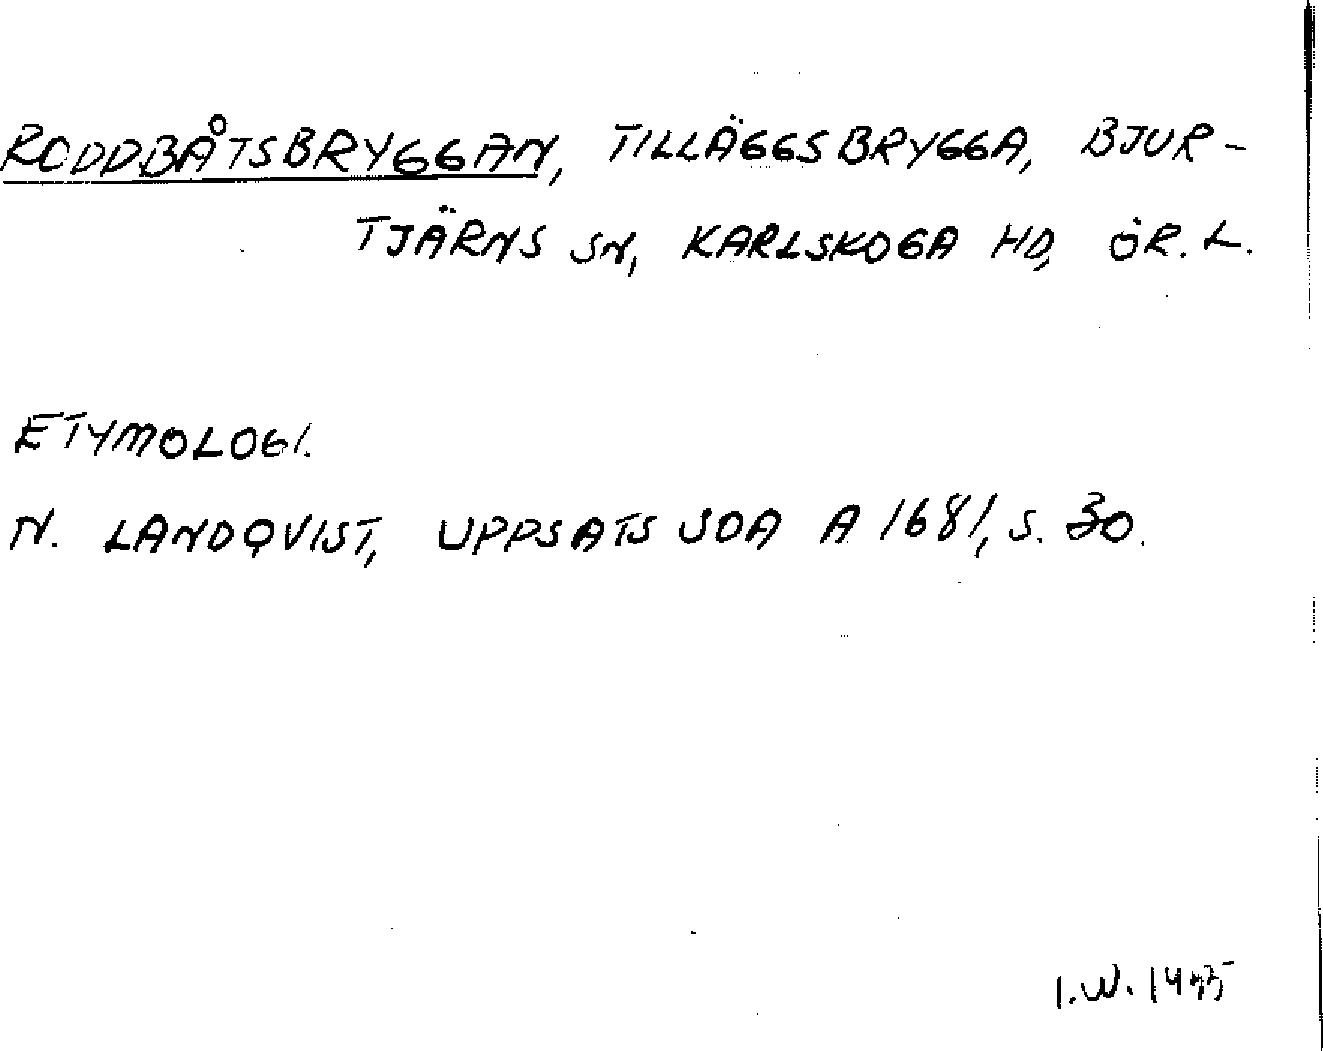 RODDBÅTSBRYGGAN, TILLÄGGSBRYGGA, BJUR-
TJÄRNS SN, KARLSKOGA HD, ÖR. L.
ETYMOLOGI.
N. LANDQVIST, UPPSATS SOA A 1681, S. 30.
I.W.